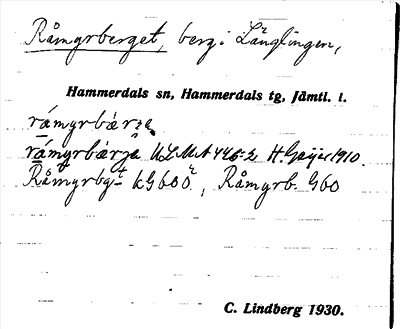 Råmyrberget, berg i Långlingen,
Hammerdals sn, Hammerdals tg, Jämtl. l.
råmyrbärʒe
råmyrbärʒe ULMA 446:2 H Geijer 1910.
Råmyrbgt kG600, Råmyrb. G60
C. Lindberg 1930.